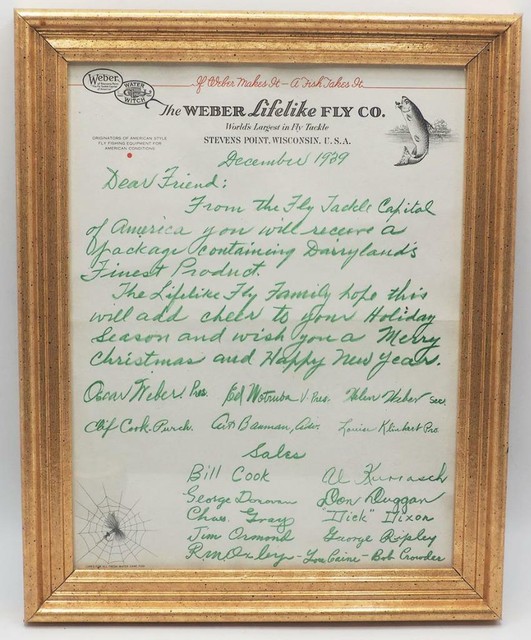 If Weber Makes It — A Fish Takes It
Weber
WATER WITCH
The WEBER Lifelike FLY CO.
World's Largest in Fly Tackle
STEVENS POINT, WISCONSIN, U.S.A.
ORIGINATORS OF AMERICAN STYLE
FLY FISHING EQUIPMENT FOR
AMERICAN CONDITIONS
December 1939
Dear Friend:
From the Fly Tackle Capitol
of America you will receive a
package containing Dairyland's
Finest Product.
The Lifelike Fly Family hope this
will add cheer to your Holiday
Season and wish you a Merry
Christmas and Happy New Year.
Oscar Weber. Pres. Ed Wotruba V. Pres. Helen Weber Sec.
Clif Cook. Purch. Art Bauman, Adv. Louise Klinhert Pro.
Sales
Bill Cook Al
George Donovan Don Duggan
Chas. Gray "Dick" Dixon
Jim Ormond George Ripley
R.M. Oxley - Lou Caine - Bob Crowder